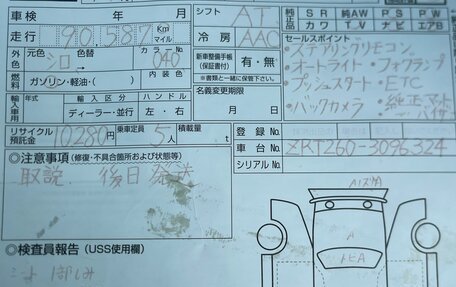 車検 年 月
シフト AT
純正品 S R 純AW P S P W
カワ T V ナビ エアB
走行 90,587 Km マイル
冷房 AAC
セールスポイント
・ステアリングリモコン
・オートライト・フォグランプ
・プッシュスタート・ETC
・バックカメラ・純正マット
バイザー
外装色 元色 色替 カラーNo.
シロ 040
新車整備手帳(保証書付) 有・無
※書類と一緒に保管下さい
燃料 ガソリン・軽油・( ) 内装色
名義変更期限
月 日
輸入車用 年式 輸入区分 ハンドル
ディーラー・並行 左・右
リサイクル預託金 10280円 乗車定員 5人 積載量 t
登録No.
車台No. ZRT260-3096324
シリアルNo.
○注意事項(修復・不具合箇所および状態等)
取説 後日発送
○検査員報告(USS使用欄)
シート 1部しみ
A